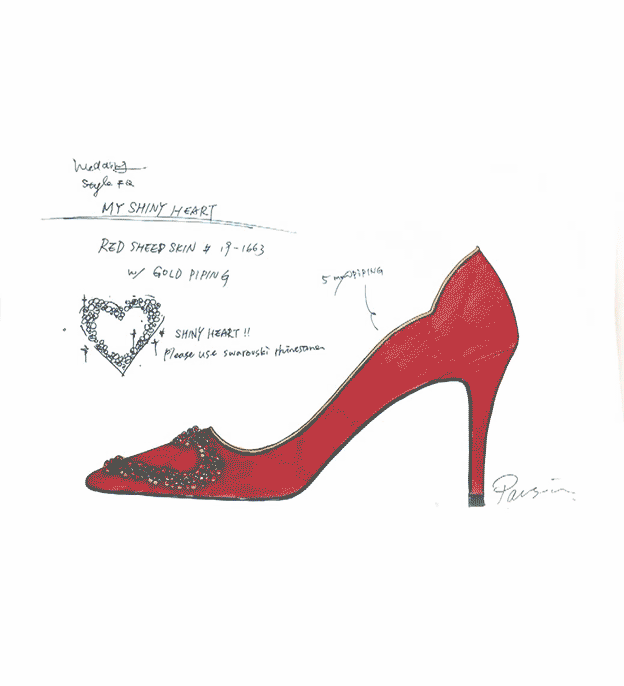 Wedding
Style #2
MY SHINY HEART
RED SHEEP SKIN # 19-1663
w/ GOLD PIPING
5 mm PIPING
SHINY HEART !!
Please use swarovski rhinestones